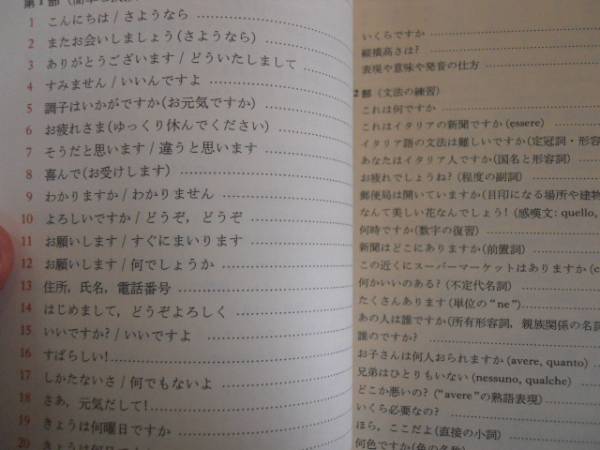 第1部
1 こんにちは / さようなら
2 またお会いしましょう(さようなら)
3 ありがとうございます / どういたしまして
4 すみません / いいんですよ
5 調子はいかがですか(お元気ですか)
6 お疲れさま(ゆっくり休んでください)
7 そうだと思います / 違うと思います
8 喜んで(お受けします)
9 わかりますか / わかりません
10 よろしいですか / どうぞ, どうぞ
11 お願いします / すぐにまいります
12 お願いします / 何でしょうか
13 住所, 氏名, 電話番号
14 はじめまして, どうぞよろしく
15 いいですか? / いいですよ
16 すばらしい!
17 しかたないさ / 何でもないよ
18 さあ, 元気だして!
19 きょうは何曜日ですか
20 きょうは何日ですか
いくらですか
縦横高さは?
表現や意味や発音の仕方
2部 (文法の練習)
これは何ですか
これはイタリアの新聞ですか (essere)
イタリア語の文法は難しいですか (定冠詞・形容
あなたはイタリア人ですか (国名と形容詞)
お疲れでしょうね? (程度の副詞)
郵便局は開いていますか (目印になる場所や建物
なんて美しい花なんでしょう! (感嘆文: quello,
何時ですか (数字の復習)
新聞はどこにありますか (前置詞)
この近くにスーパーマーケットはありますか (c
何かいいのある? (不定代名詞)
たくさんあります (単位の “ne”)
あの人は誰ですか (所有形容詞, 親族関係の名詞
誰のですか?
お子さんは何人おられますか (avere, quanto)
兄弟はひとりもいない (nessuno, qualche)
どこか悪いの? (“avere”の熟語表現)
いくら必要なの?
ほら, ここだよ (直接の小詞)
何色ですか (色の名称)